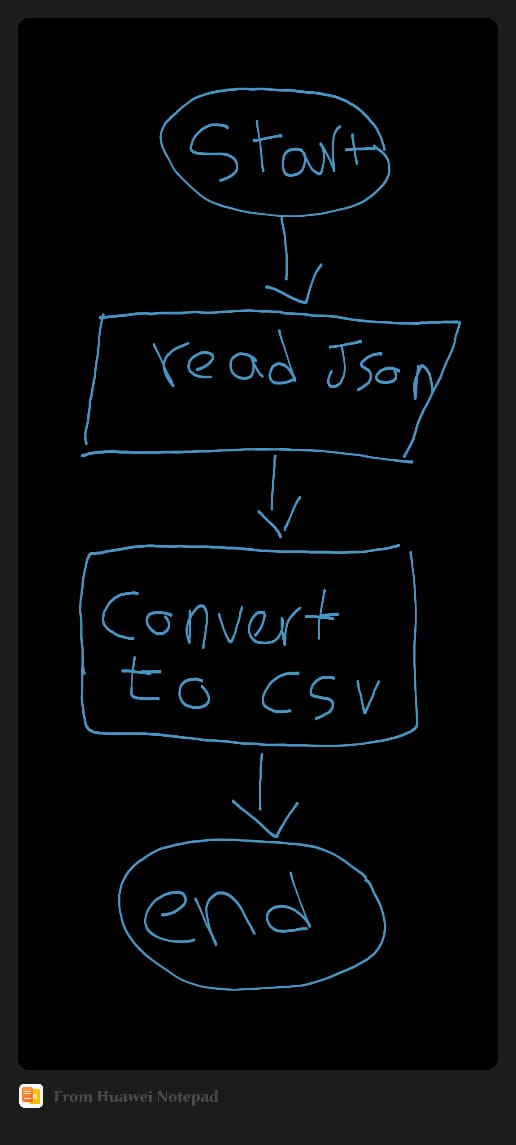 Start
read Json
Convert
to CSV
end
From Huawei Notepad